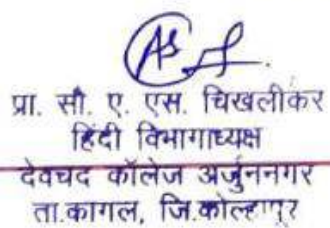 प्रा. सौ. ए. एस. चिखलीकर
हिंदी विभागाध्यक्ष
देवचंद कॉलेज अर्जुननगर
ता.कागल, जि.कोल्हापूर